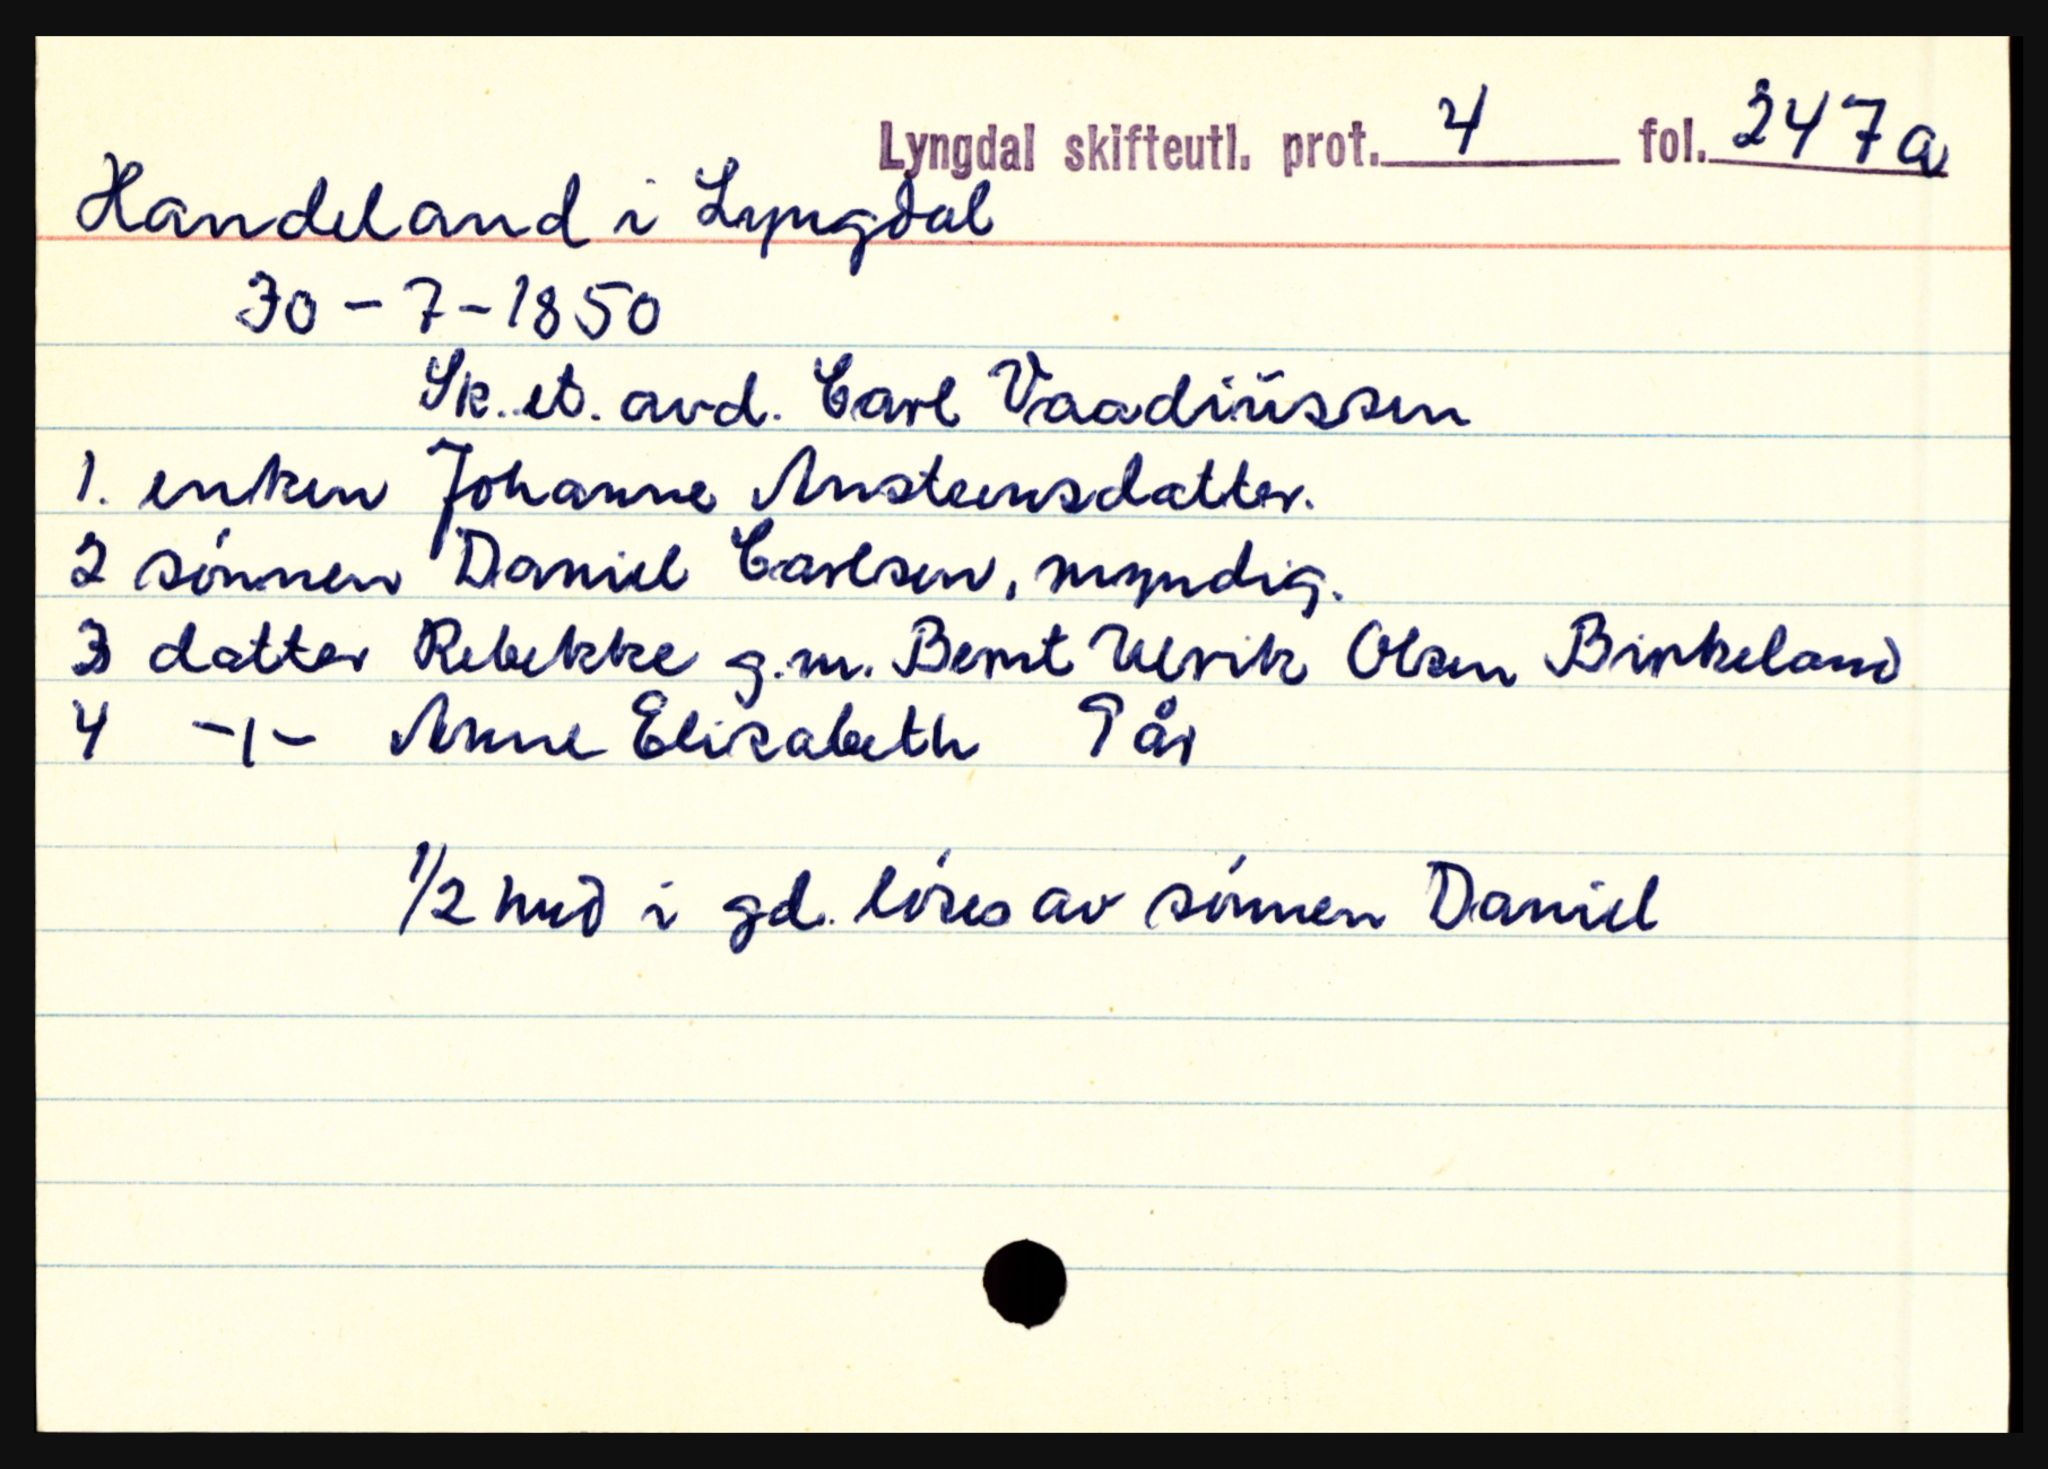 Lyngdal skifteutl. prot. 4 fol. 247a
Handeland i Lyngdal
30-7-1850
Sk. et. avd. Carl Vaadiussen
1. enken Johanne Ansteensdatter.
2 sønnen Daniel Carlsen, myndig.
3 datter Rebekke g.m. Bernt Ulrik Olsen Birkeland
4 -1- Anne Elisabeth 9 år
1/2 hud i gd. løses av sønnen Daniel